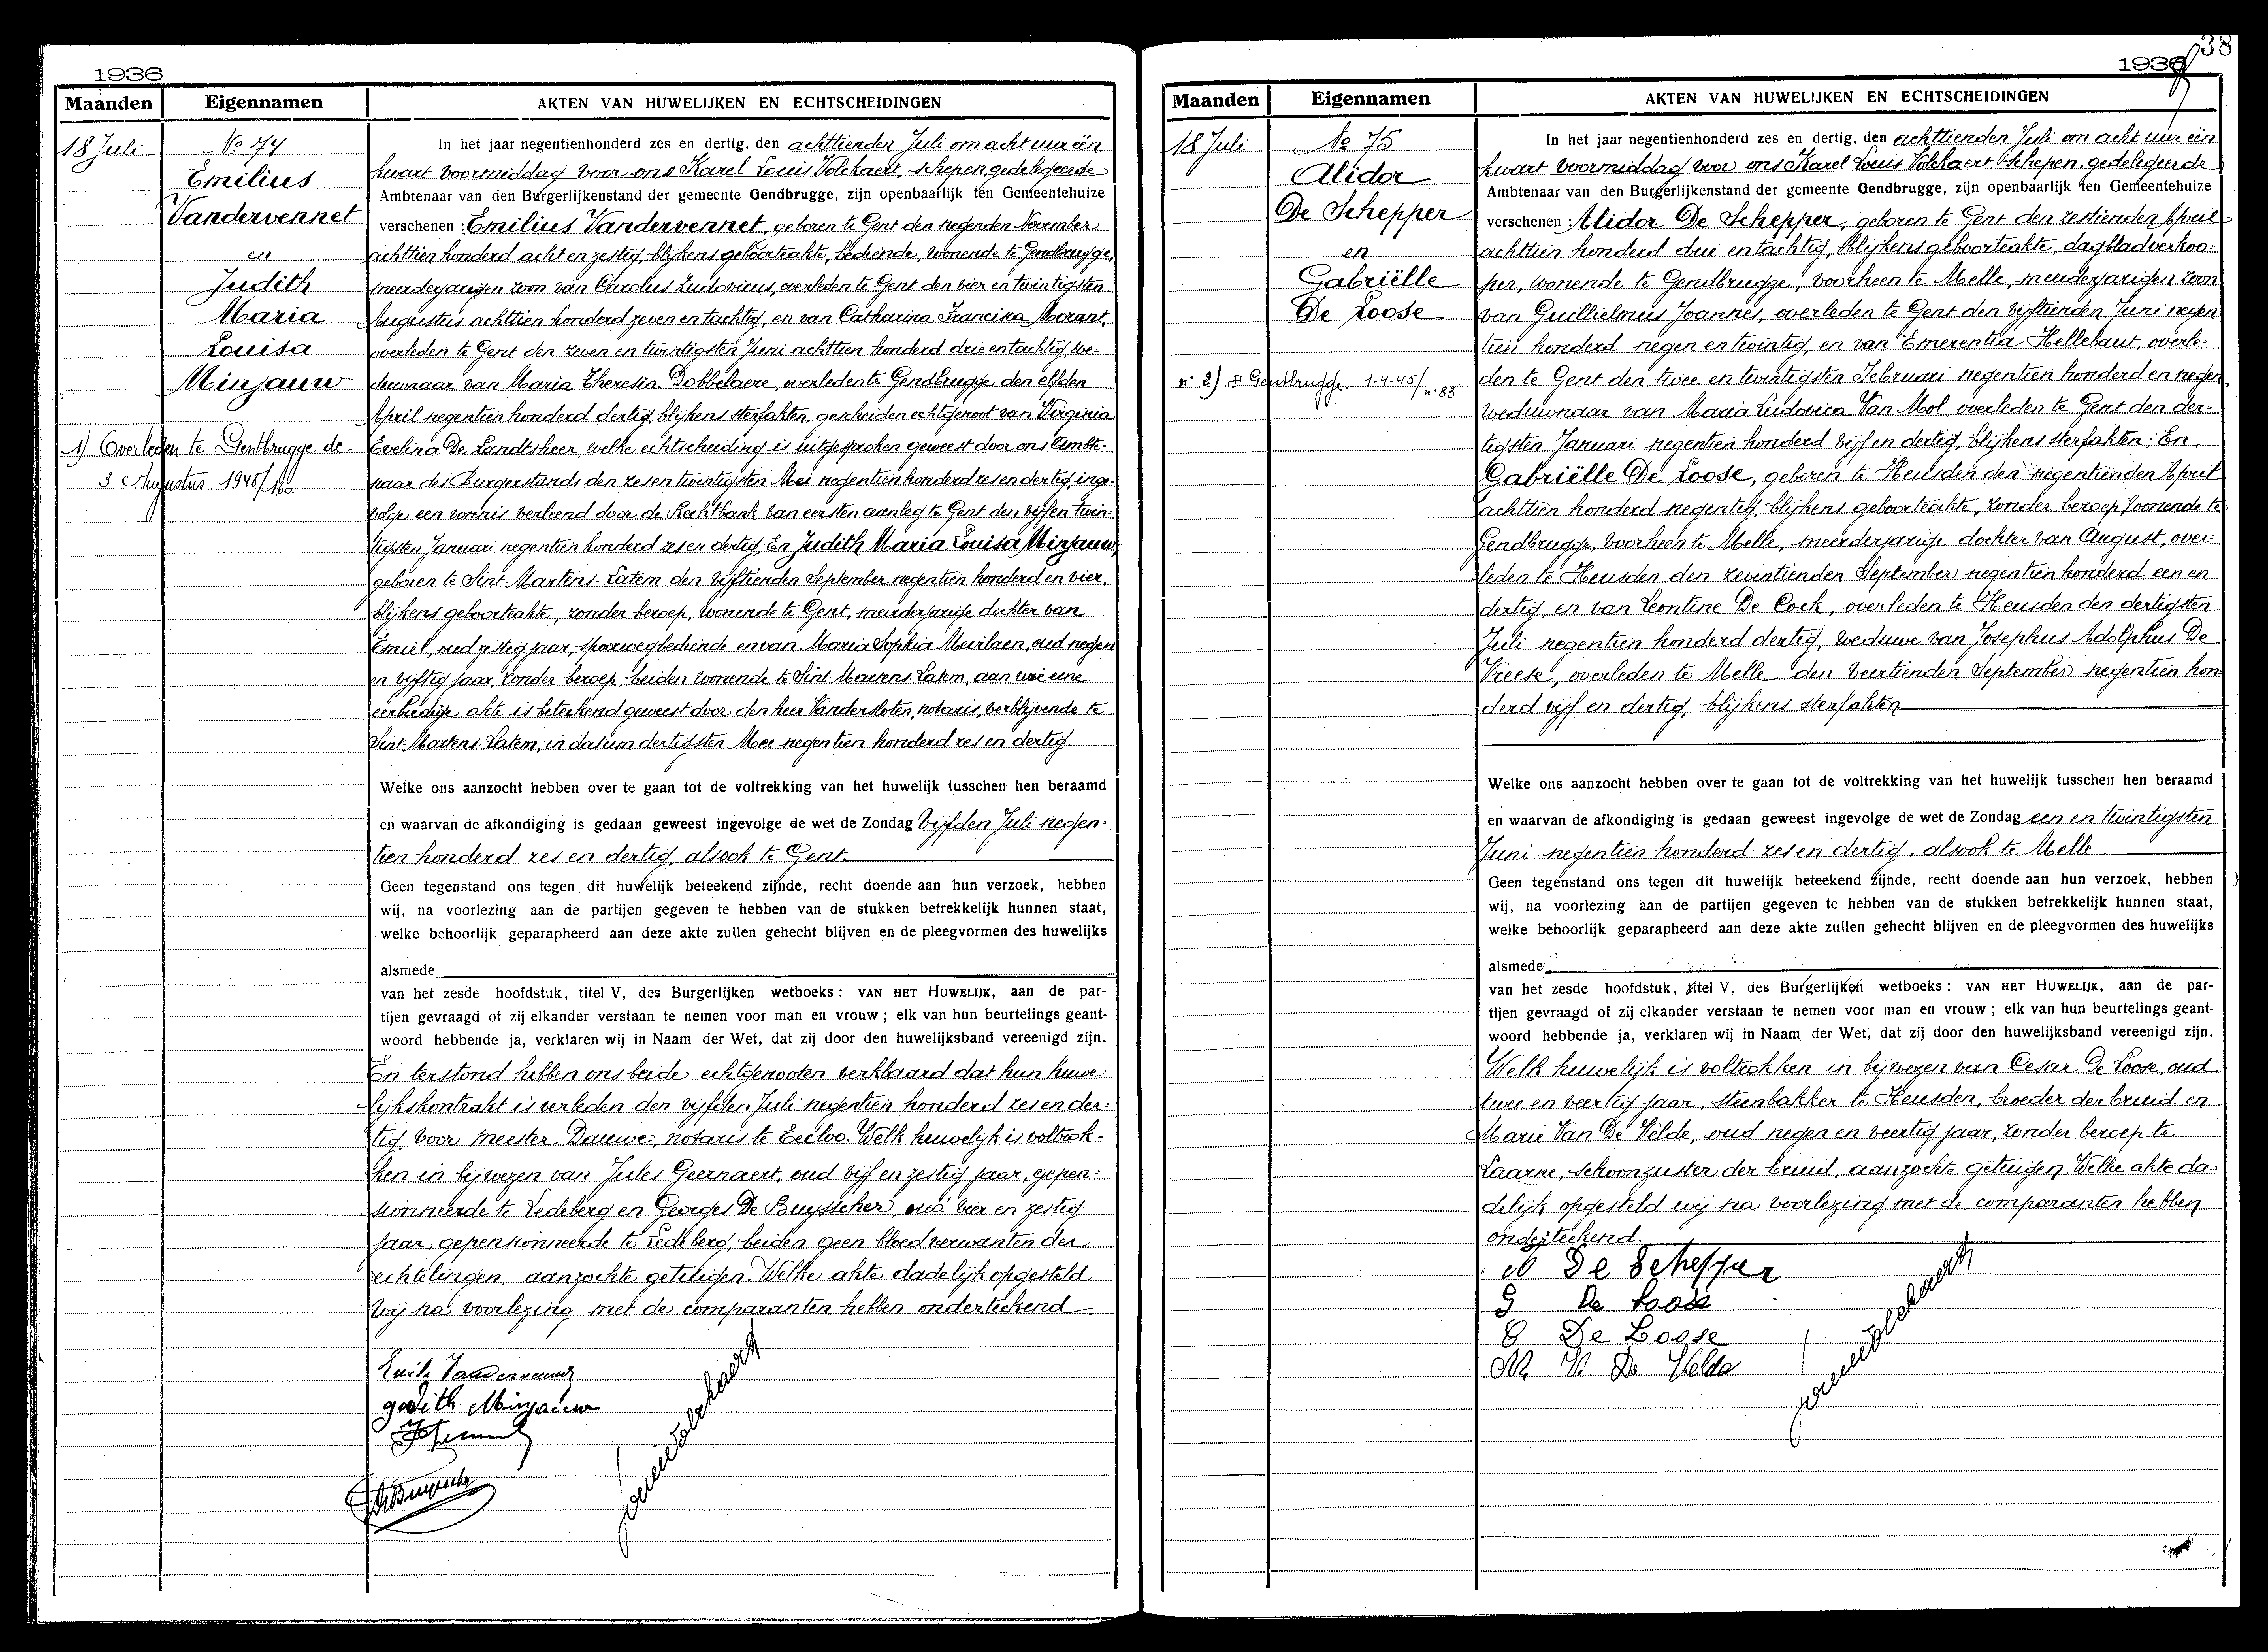 1936
Maanden
Eigennamen
AKTEN VAN HUWELIJKEN EN ECHTSCHEIDINGEN
18 Juli
No 74
Emilius
Vandervennet
en
Judith
Maria
Louisa
Minjauw
1) Overleden te Gentbrugge de
3 Augustus 1948/160
In het jaar negentienhonderd zes en dertig, den achttienden Juli om acht uur ëen
kwart voormiddag voor ons Karel Louis Volckaert, schepen gedelegeerde
Ambtenaar van den Burgerlijkenstand der gemeente Gendbrugge, zijn openbaarlijk ten Gemeentehuize
verschenen : Emilius Vandervennet, geboren te Gent den negenden November
achttien honderd acht en zestig, blijkens geboorteakte, bediende, wonende te Gendbrugge,
meerderjarigen zoon van Carolus Ludovicus, overleden te Gent den vier en twintigsten
Augustus achttien honderd zeven en tachtig, en van Catharina Francisca Morant,
overleden te Gent den zeven en twintigsten Juni achttien honderd drie en tachtig, we-
duwnaar van Maria Theresia Dobbelaere, overleden te Gendbrugge den elfden
April negentien honderd dertig, blijkens sterfakten, gescheiden echtgenoot van Virginia
Evelina De Landtsheer welke echtscheiding is uitgesproken geweest door ons Ambte-
naar des Burgerstands den zes en twintigsten Mei negentien honderd zes en dertig, inge-
volge een vonnis verleend door de Rechtbank van eersten aanleg te Gent den vijf en twin-
tigsten Januari negentien honderd zes en dertig; En Judith Maria Louisa Minjauw,
geboren te Sint-Martens-Latem den vijftienden September negentien honderd en vier,
blijkens geboorteakte, zonder beroep, wonende te Gent, meerderjarige dochter van
Emiel, oud zestig jaar, spoorwegbediende en van Maria Sophia Mevilaen, oud negen
en vijftig jaar, zonder beroep, beiden wonende te Sint Martens Latem, aan wie eene
eerbiedige akte is beteekend geweest door den heer Vandersloten, notaris, verblijvende te
Sint Martens Latem, in datum dertigsten Mei negentien honderd zes en dertig
Welke ons aanzocht hebben over te gaan tot de voltrekking van het huwelijk tusschen hen beraamd
en waarvan de afkondiging is gedaan geweest ingevolge de wet de Zondag vijfden Juli negen-
tien honderd zes en dertig, alsook te Gent.
Geen tegenstand ons tegen dit huwelijk beteekend zijnde, recht doende aan hun verzoek, hebben
wij, na voorlezing aan de partijen gegeven te hebben van de stukken betrekkelijk hunnen staat,
welke behoorlijk geparapheerd aan deze akte zullen gehecht blijven en de pleegvormen des huwelijks
alsmede
van het zesde hoofdstuk, titel V, des Burgerlijken wetboeks : VAN HET HUWELIJK, aan de par-
tijen gevraagd of zij elkander verstaan te nemen voor man en vrouw ; elk van hun beurtelings geant-
woord hebbende ja, verklaren wij in Naam der Wet, dat zij door den huwelijksband vereenigd zijn.
En terstond hebben ons beide echtgenooten verklaard dat hun huwe-
lijkskontrakt is verleden den vijfden Juli negentien honderd zes en der-
tig voor meester Dauwe, notaris te Eecloo. Welk huwelijk is voltrok-
ken in bijwezen van Jules Geernaert, oud vijf en zestig jaar, gepen-
sionneerde te Ledeberg en Georges De Buysscher, oud vier en zestig
jaar, gepensionneerde te Ledeberg, beiden geen bloedverwanten der
echtelingen, aanzochte getuigen. Welke akte dadelijk opgesteld
wij na voorlezing met de comparanten hebben onderteekend.
Emile Vandervennet
Judith Minjauw
38
1936
Maanden
Eigennamen
AKTEN VAN HUWELIJKEN EN ECHTSCHEIDINGEN
18 Juli
No 75
Alidor
De Schepper
en
Gabriëlle
De Loose
n° 2) Gendbrugge 1-4-45/n°83
In het jaar negentienhonderd zes en dertig, den achttienden Juli om acht uur ëen
kwart voormiddag voor ons Karel Louis Volckaert Schepen, gedelegeerde
Ambtenaar van den Burgerlijkenstand der gemeente Gendbrugge, zijn openbaarlijk ten Gemeentehuize
verschenen : Alidor De Schepper, geboren te Gent den zestienden April
achttien honderd drie en tachtig, blijkens geboorteakte, dagbladverkoo-
per, wonende te Gendbrugge, voorheen te Melle, meerderjarigen zoon
van Guillielmus Joannes, overleden te Gent den vijftienden Juni negen
tien honderd negen en twintig, en van Emerentia Hellebaut, overle-
den te Gent den twee en twintigsten Februari negentien honderd en negen,
weduwnaar van Maria Ludovica Van Mol, overleden te Gent den der-
tigsten Januari negentien honderd vijf en dertig, blijkens sterfakten; En
Gabriëlle De Loose, geboren te Heusden den negentienden April
achttien honderd negentig, blijkens geboorteakte, zonder beroep, wonende te
Gendbrugge, voorheen te Melle, meerderjarige dochter van August, over-
leden te Heusden den zeventienden September negentien honderd een en
dertig, en van Leontine De Cock, overleden te Heusden den dertigsten
Juli negentien honderd dertig, weduwe van Josephus Adolphus De
Vreese, overleden te Melle den veertienden September negentien hon-
derd vijf en dertig, blijkens sterfakten
Welke ons aanzocht hebben over te gaan tot de voltrekking van het huwelijk tusschen hen beraamd
en waarvan de afkondiging is gedaan geweest ingevolge de wet de Zondag een en twintigsten
Juni negentien honderd zes en dertig, alsook te Melle
Geen tegenstand ons tegen dit huwelijk beteekend zijnde, recht doende aan hun verzoek, hebben
wij, na voorlezing aan de partijen gegeven te hebben van de stukken betrekkelijk hunnen staat,
welke behoorlijk geparapheerd aan deze akte zullen gehecht blijven en de pleegvormen des huwelijks
alsmede
van het zesde hoofdstuk, titel V, des Burgerlijken wetboeks : VAN HET HUWELIJK, aan de par-
tijen gevraagd of zij elkander verstaan te nemen voor man en vrouw ; elk van hun beurtelings geant-
woord hebbende ja, verklaren wij in Naam der Wet, dat zij door den huwelijksband vereenigd zijn.
Welk huwelijk is voltrokken in bijwezen van Cesar De Loose, oud
twee en veertig jaar, steenbakker te Heusden, broeder der bruid en
Marie Van De Velde, oud negen en veertig jaar, zonder beroep te
Laarne, schoonzuster der bruid, aanzochte getuigen. Welke akte da-
delijk opgesteld wij na voorlezing met de comparanten hebben
onderteekend
De Schepper
G De Loose
C De Loose
M V De Velde